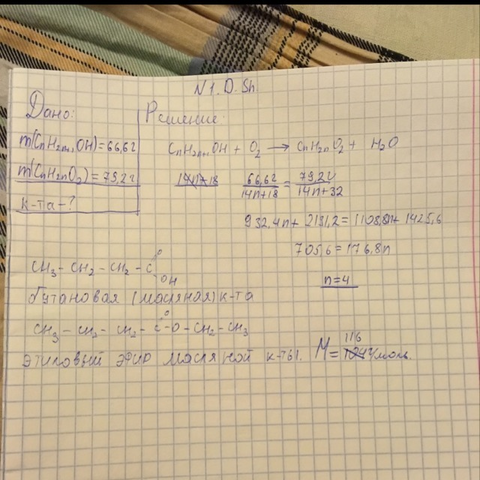 N1. D. Sh.
Дано: Решение:
m(CnH2n+1OH)=66,6г
m(CnH2nO2)=79,2г
к-та-?
CnH2n+1OH + O2 → CnH2nO2 + H2O
66,6г/14n+18 = 79,2г/14n+32
932,4n + 2131,2 = 1108,8n + 1425,6
705,6 = 176,8n
n=4
CH3 - CH2 - CH2 - C O OH
бутановая (масляная) к-та
CH3 - CH2 - CH2 - C O - O - CH2 - CH3
этиловый эфир масляной к-ты. M = 116 г/моль.